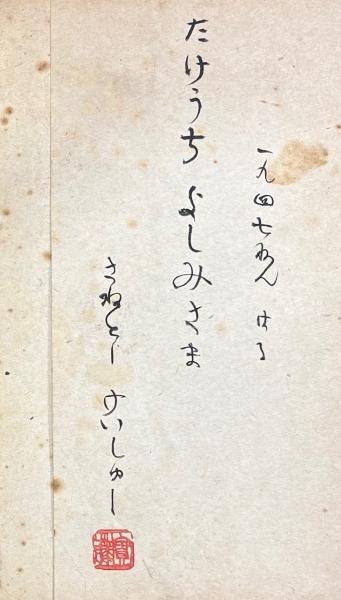 一九四七ねん はる
たけうち よしみさま
さねとー けいしゅー
實藤